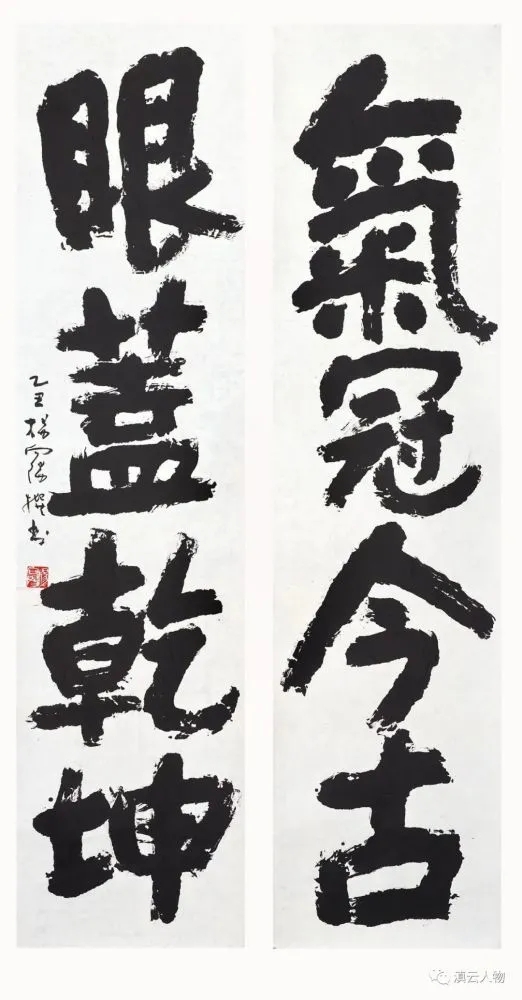 氣冠今古
眼蓋乾坤
乙丑 楊 撰書
滇云人物